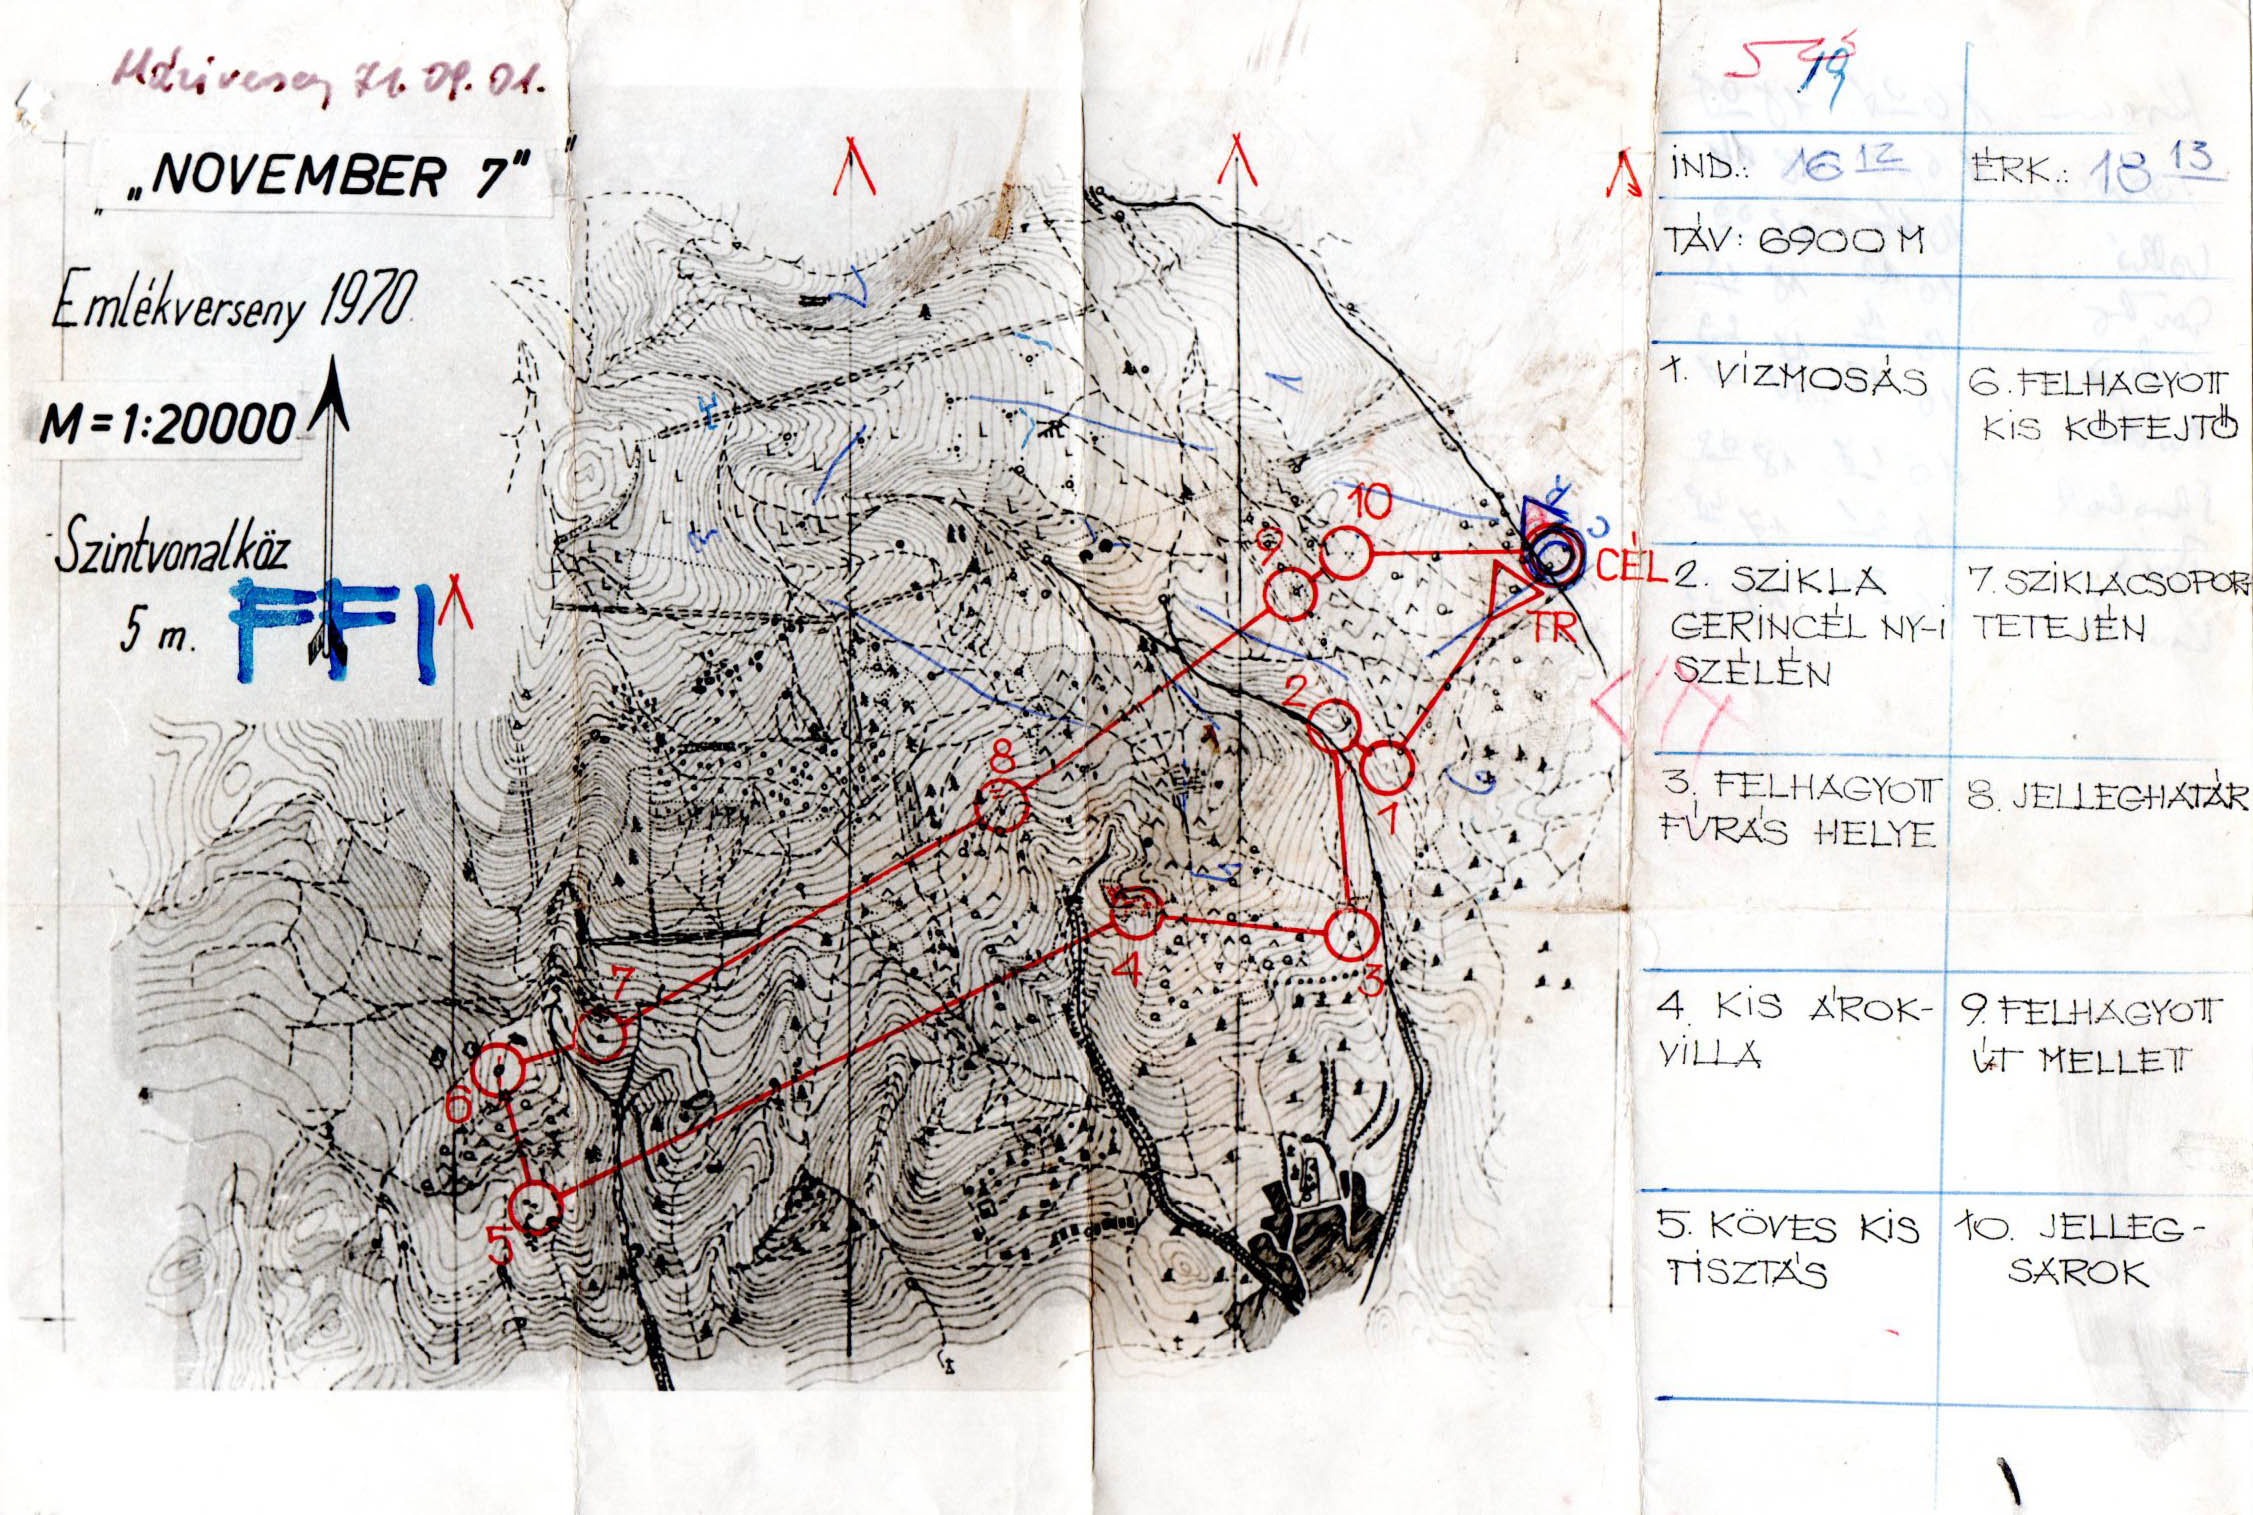 Háziverseny 71. 09. 01.
„NOVEMBER 7"
Emlékverseny 1970.
M=1:20000
Szintvonalköz
5 m.
FFI
10
9
CÉL
TR
2
1
8
3
4
7
6
5
19
IND.: 16 12 ÉRK.: 18 13
TÁV: 6900 M
1. VÍZMOSÁS
2. SZIKLA
GERINCÉL NY-i
SZÉLÉN
3. FELHAGYOTT
FÚRÁS HELYE
4. KIS ÁROK-
VILLA
5. KÖVES KIS
TISZTÁS
6. FELHAGYOTT
KIS KŐFEJTŐ
7. SZIKLACSOPORT
TETEJÉN
8. JELLEGHATÁR
9. FELHAGYOTT
ÚT MELLETT
10. JELLEG-
SAROK